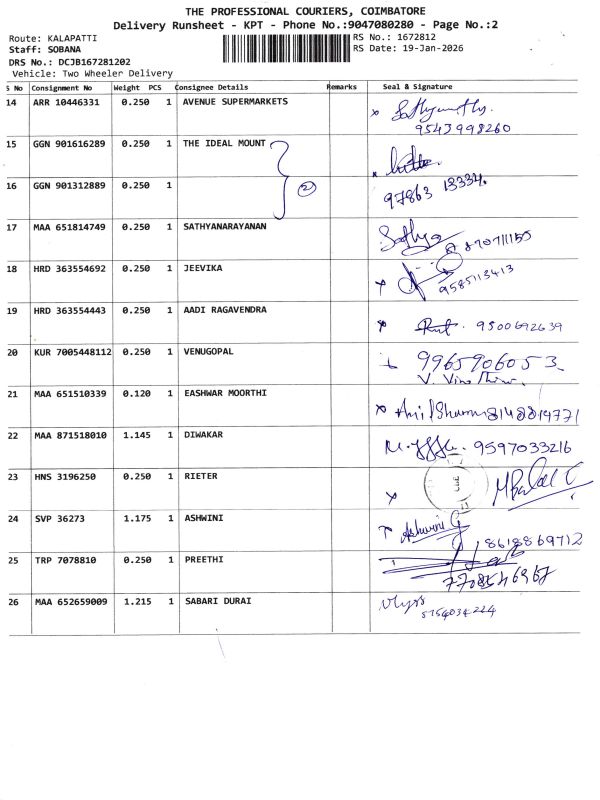 THE PROFESSIONAL COURIERS, COIMBATORE
Delivery Runsheet - KPT - Phone No.:9047080280 - Page No.:2
Route: KALAPATTI RS No.: 1672812
Staff: SOBANA RS Date: 19-Jan-2026
DRS No.: DCJB167281202
Vehicle: Two Wheeler Delivery
S No Consignment No Weight PCS Consignee Details Remarks Seal & Signature
14 ARR 10446331 0.250 1 AVENUE SUPERMARKETS
9543998260
15 GGN 901616289 0.250 1 THE IDEAL MOUNT
16 GGN 901312889 0.250 1 2
97863 13334.
17 MAA 651814749 0.250 1 SATHYANARAYANAN Sathya
18 HRD 363554692 0.250 1 JEEVIKA
9585113413
19 HRD 363554443 0.250 1 AADI RAGAVENDRA 9500692639
20 KUR 7005448112 0.250 1 VENUGOPAL 9965906053
21 MAA 651510339 0.120 1 EASHWAR MOORTHI 8148814771
22 MAA 871518010 1.145 1 DIWAKAR 9597033216
23 HNS 3196250 0.250 1 RIETER
24 SVP 36273 1.175 1 ASHWINI Ashwini G
8618869712
25 TRP 7078810 0.250 1 PREETHI
26 MAA 652659009 1.215 1 SABARI DURAI